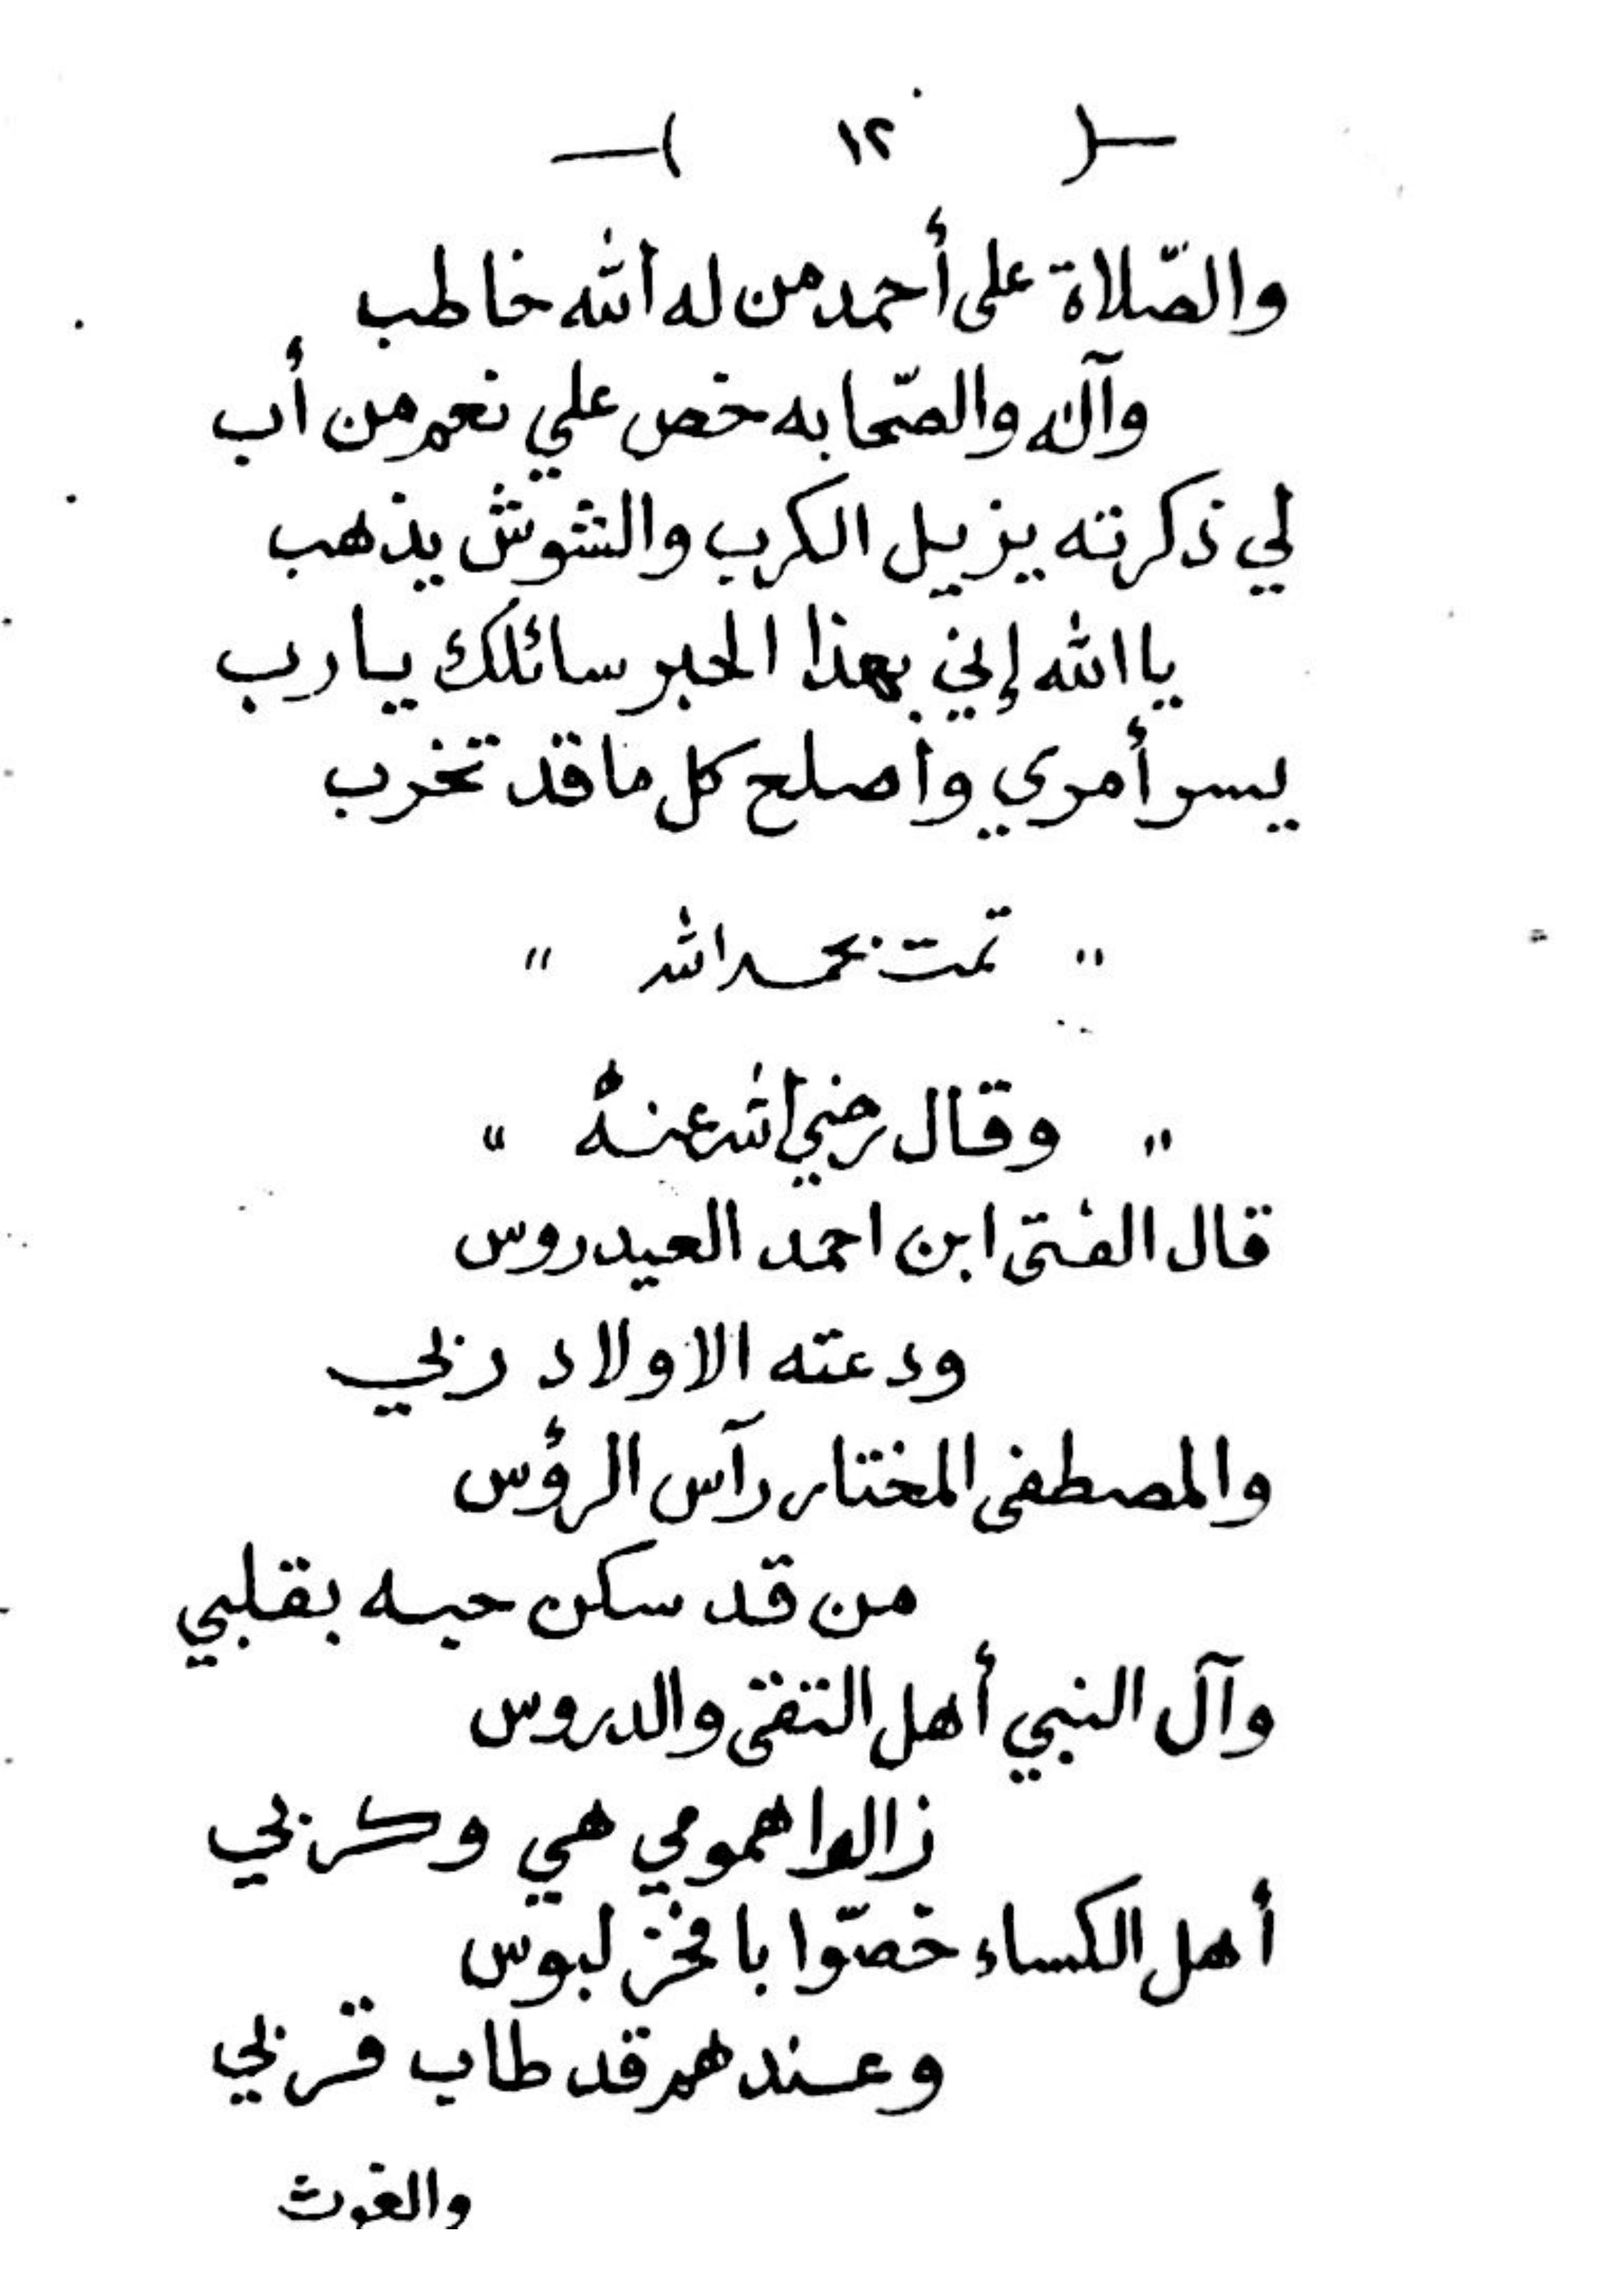 —( ١٢ )—
والصّلاة على أحمد من له الله خاطب
وآله والصّحابه خص علي نعم من أب
لي ذكرته يزيل الكرب والشوش يذهب
يا الله إني بهذا الحبر سائلك يا رب
يسر أمري وأصلح كل ما قد تخرب
" تمت بحمد الله "
" وقال رضي الله عنهُ "
قال الفتى ابن احمد العيدروس
ودعته الاولاد ربي
والمصطفى المختار رآس الرؤس
من قد سكن حبه بقلبي
وآل النبي أهل التقى والدروس
زالوا همومي هي وكربي
أهل الكساء خصّوا بافخر لبوس
وعندهم قد طاب قربي
والغوث